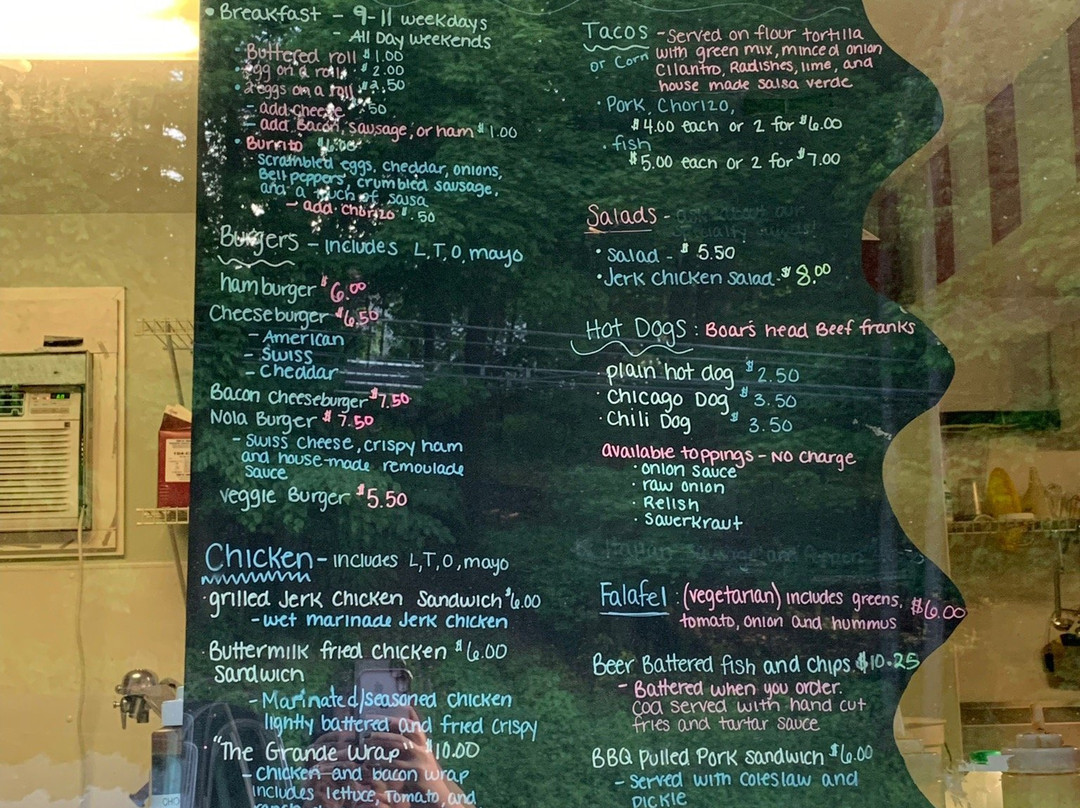 • Breakfast - 9-11 weekdays
- All Day weekends
Buttered roll $1.00
• egg on a roll $2.00
• 2 eggs on a roll $2.50
- add cheese $.50
- add Bacon, sausage, or ham $1.00
• Burrito $6.00
scrambled eggs, cheddar, onions,
Bell peppers, crumbled sausage,
and a touch of salsa
- add chorizo $.50
Burgers - includes L,T,O, mayo
hamburger $6.00
Cheeseburger $6.50
- American
- Swiss
- Cheddar
Bacon cheeseburger $7.50
Nola Burger $7.50
- Swiss cheese, crispy ham
and house-made remoulade
sauce
veggie Burger $5.50
Chicken - includes L,T,O, mayo
• grilled Jerk Chicken Sandwich $6.00
- wet marinade Jerk chicken
• Buttermilk fried chicken $6.00
Sandwich
- Marinated/seasoned chicken
lightly battered and fried crispy
• "The Grande Wrap" $10.00
- Chicken and bacon wrap
includes lettuce, Tomato, and
Tacos - Served on flour tortilla
or Corn with green mix, minced onion
Cilantro, Radishes, lime, and
house made salsa verde
• Pork, Chorizo,
$4.00 each or 2 for $6.00
• fish
$5.00 each or 2 for $7.00
Salads -
• salad - $5.50
• Jerk Chicken Salad - $8.00
Hot Dogs: Boars head Beef franks
• plain hot dog $2.50
• Chicago Dog $3.50
• Chili Dog $3.50
available toppings - No charge
• onion sauce
• raw onion
• Relish
• sauerkraut
Falafel: (vegetarian) includes greens, $6.00
tomato, onion and hummus
Beer Battered fish and chips $10.25
- Battered when you order.
Cod served with hand cut
fries and tartar sauce
BBQ Pulled Pork sandwich $6.00
- served with coleslaw and
pickle